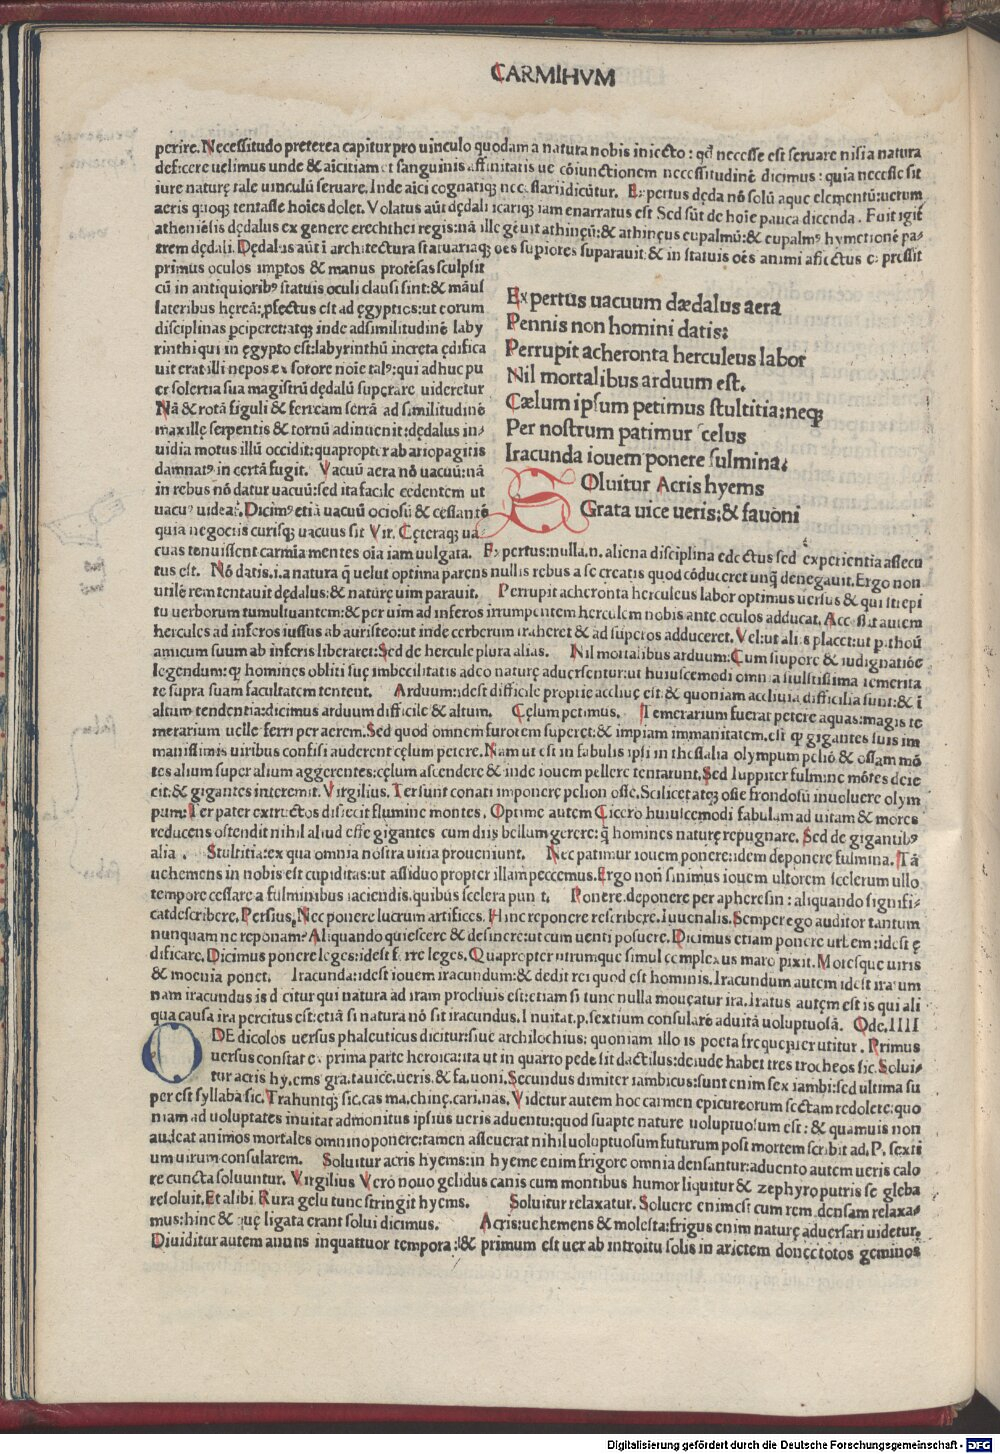 CARMIHVM
perire. Necessitudo preterea capitur pro uinculo quodam a natura nobis iniecto: qđ necesse est seruare nisi a natura
deficere uelimus unde & aīcitiam et sanguinis affinitatis ue cōiunctionem necessitudinē dicimus: quia necesse sit
iure naturę tale uinculū seruare. Inde aīci cognatiqȝ necessarii dicūtur. Expertus dęda nō solū aque elementū: uerum
aeris quoqȝ tentasse hoīes dolet. Volatus aūt dędali icariqȝ iam enarratus est Sed sūt de hoīe pauca dicenda. Fuit igiť
atheniēsis dędalus ex genere erechthei regis: nā ille genuit athinęū: & athinęus eupalmū: & eupalmꝰ hymetionē pa-
trem dędali. Dędalus aūt ī architectura statuariaqȝ oēs supiores suparauit: & in statuis oēs animi affectus expressit
primus oculos imptos & manus protēsas sculpsit
cū in antiquioribꝰ statuis oculi clausi sint: & māus
lateribus hęreāt: pfectus est ad ęgyptios: ut eorum
disciplinas pciperet: atqȝ inde adsimilitudinē laby
rinthi qui in ęgypto est: labyrinthū increta ędifica
uit erat illi nepos ex sorore noīe talꝰ: qui adhuc pu
er solertia sua magistrū dędalū superare uideretur
Nā & rotā figuli & ferream serrā ad similitudinē
maxillę serpentis & tornū adinuenit: dędalus in-
uidia motus illū occidit: quapropter ab ariopagitis
damnatꝰ in certā fugit. Vacuū aera nō uacuū: nā
in rebus nō datur uacuū: sed ita facile cedentem ut
uacuꝰ uideat. Dicimꝰ etiā uacuū ociosū & cessantē
quia negociis curisqȝ uacuus sit Vir. Cęteraqȝ ua
cuas tenuissent carmīa mentes oīa iam uulgata. Expertus: nulla.n. aliena disciplina edoctus sed experientia assecu
Expertus uacuum dædalus aera
Pennis non homini datis:
Perrupit acheronta herculeus labor
Nil mortalibus arduum est.
Cælum ipsum petimus stultitia: neqȝ
Per nostrum patimur scelus
Iracunda iouem ponere fulmina.
SOluitur Acris hyems
Grata uice ueris: & fauoni
tus est. Nō datis. i. a natura q̄ uelut optima parens nullis rebus a se creatis quod cōduceret unq̄ denegauit. Ergo non
utilē rem tentauit dędalus: & naturę uim parauit. Perrupit acheronta herculeus labor optimus uersus & qui strepi
tu uerborum tumultuantem: & per uim ad inferos irrumpentem herculem nobis ante oculos adducat. Accessit autem
hercules ad inferos iussus ab auristeo: ut inde cerberum traheret & ad superos adduceret. Vel: ut aliis placet: ut pithoū
amicum suum ab inferis liberaret: Sed de hercule plura alias. Nil mortalibus arduum: Cum stupore & īdignatiōe
legendum: qȝ homines obliti suę imbecilitatis adeo naturę aduersentur: ut huiuscemodi omnia stultissima temerita
te supra suam facultatem tentent. Arduum: idest difficile proprie accliue est. & quoniam accliuia difficilia sunt: & ī
altum tendentia: dicimus arduum difficile & altum. Cęlum petimus. Temerarium fuerat petere aquas: magis te
merarium uelle ferri per aerem. Sed quod omnem furorem superet: & impiam immanitatem. est qȝ gigantes suis im
manissimis uiribus confisi auderent cęlum petere. Nam ut est in fabulis ipsi in thessalia olympum peliō & ossam mō
tes alium super alium aggerentes: cęlum ascendere & inde iouem pellere tentarunt. Sed Iuppiter fulmine mōtes deie
cit: & gigantes interemit. Virgilius. Ter sunt conati imponere pelion osse. Scilicet atqȝ osse frondosū inuoluere olym
pum: Ter pater extructos disiecit flumine montes. Optime autem Cicero huiuscemodi fabulam ad uitam & mores
reducens ostendit nihil aliud esse gigantes cum diis bellum gerere: q̄ homines naturę repugnare. Sed de gigantibꝰ
alia. Stultitia: ex qua omnia nostra uitia proueniunt. Nec patimur iouem ponere: idem deponere fulmina. Tā
uehemens in nobis est cupiditas: ut assiduo propter illam peccemus. Ergo non sinimus iouem ultorem scelerum ullo
tempore cessare a fulminibus iaciendis. quibus scelera punit. Ponere. deponere per apheresin: aliquando signifi-
cat describere. Persius. Nec ponere lucrum artifices. Hinc reponere rescribere. Iuuenalis. Semper ego auditor tantum
nunquam ne reponam? Aliquando quiescere & desinere: ut cum uenti posuere. Dicimus etiam ponere urbem: idest ę
dificare. Dicimus ponere leges: idest ferre leges. Quapropter utrumque simul complexus maro pixit. Moresque uiris
& moenia ponet. Iracunda: idest iouem iracundum: & dedit rei quod est hominis. Iracundum autem idest iratum
nam iracundus is dicitur qui natura ad iram procliuis est: etiam si tunc nulla moueatur ira. Iratus autem est is qui ali
qua causa ira percitus est: etiā si natura nō sit iracundus. Inuitat. p. sextium consularē aduitā uoluptuosā. Ode. IIII
ODE dicolos uersus phaleuticus dicitur: siue archilochius: quoniam illo is poeta frequenter utitur. Primus
uersus constat ex prima parte heroica: ita ut in quarto pede sit dactilus: deinde habet tres trocheos sic. Solui-
tur acris hy. ems gra. tauice. ueris. & fa. uoni. Secundus dimiter iambicus: sunt enim sex iambi: sed ultima su
per est syllaba sic. Trahuntqȝ sic. cas ma. chinę. cari. nas. Videtur autem hoc carmen epicureorum sectam redolere: quo
niam ad uoluptates inuitat admonitus ipsius ueris aduentu: quod suapte nature uoluptuosum est: & quamuis non
audeat animos mortales omnino ponere: tamen asseuerat nihil uoluptuosum futurum post mortem scribit ad. P. sexti
um uirum consularem. Soluitur acris hyems: in hyeme enim frigore omnia densantur: aduento autem ueris calo
re cuncta soluuntur. Virgilius Vero nouo gelidus canis cum montibus humor liquitur & zephyro putris se gleba
resoluit. Et alibi. Rura gelu tunc stringit hyems. Soluitur relaxatur. Soluere enim est cum rem densam relaxa-
mus: hinc & quę ligata erant solui dicimus. Acris: uehemens & molesta: frigus enim naturę aduersari uidetur.
Diuiditur autem annus in quattuor tempora: & primum est uer ab introitu solis in arietem donec totos geminos
Digitalisierung gefördert durch die Deutsche Forschungsgemeinschaft - DFG